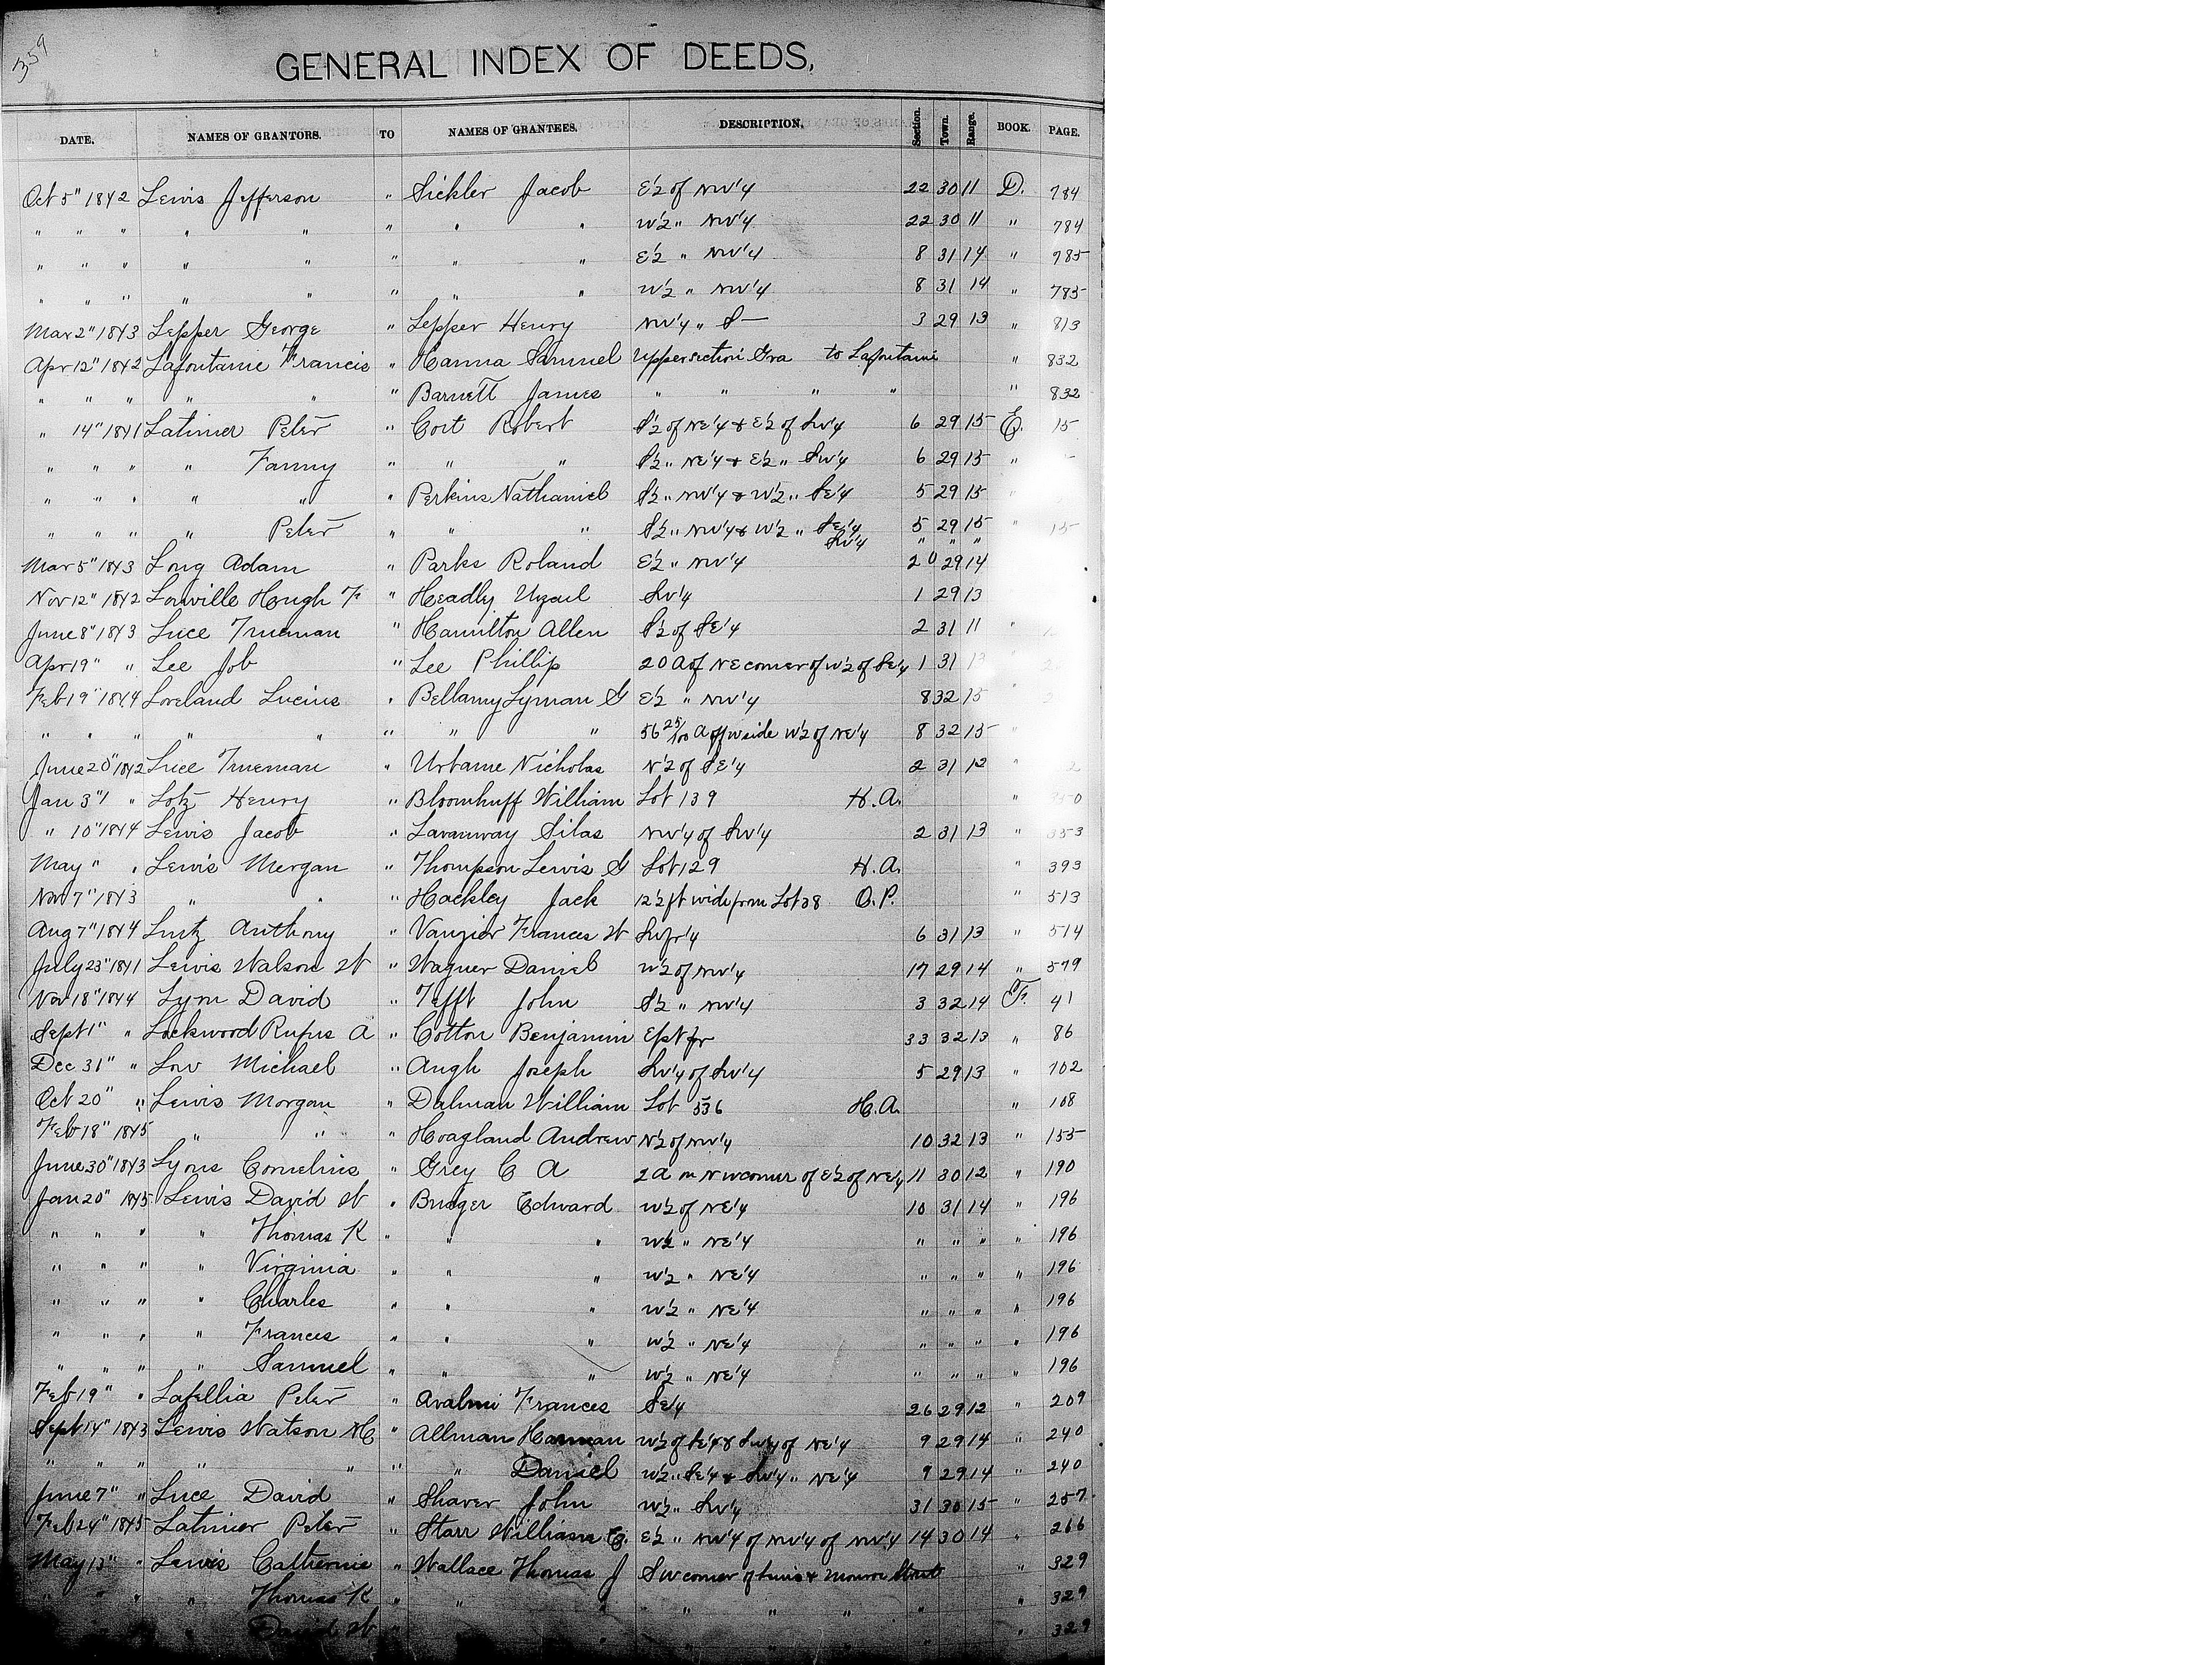 359
GENERAL INDEX OF DEEDS,
DATE. NAMES OF GRANTORS. TO NAMES OF GRANTEES. DESCRIPTION. Section. Town. Range. BOOK. PAGE.
Oct 5" 1842 Lewis Jefferson " Sickler Jacob E 1/2 of NW 1/4 22 30 11 D. 784
" " " " " " " " W 1/2 " NW 1/4 22 30 11 " 784
" " " " " " " " E 1/2 " NW 1/4 8 31 14 " 785
" " " " " " " " W 1/2 " NW 1/4 8 31 14 " 785
Mar 2" 1843 Lepper George " Lepper Henry NW 1/4 " S — 3 29 13 " 813
Apr 12" 1842 Lafontaine Francis " Hanna Samuel Upper section Gra to Lafontaine " 832
" " " " " " Barnett James " " " " " 832
" 14" 1841 Latimer Peter " Cort Robert S 1/2 of NE 1/4 & E 1/2 of SW 1/4 6 29 15 E. 15
" " " " Fanny " " " S 1/2 " NE 1/4 & E 1/2 " SW 1/4 6 29 15 "
" " " " " " Perkins Nathaniel S 1/2 " NW 1/4 & W 1/2 " SE 1/4 5 29 15 "
" " " " Peter " " " S 1/2 " NW 1/4 & W 1/2 " SE 1/4 5 29 15 " 15
SW 1/4 " " "
Mar 5" 1843 Long Adam " Parks Roland E 1/2 " NW 1/4 20 29 14
Nov 12" 1842 Louville Hough F " Headly Uzail SW 1/4 1 29 13
June 8" 1843 Luce Trueman " Hamilton Allen S 1/2 of SE 1/4 2 31 11 "
Apr 19" " Lee Job " Lee Phillip 20 A of NE corner of W 1/2 of SE 1/4 1 31 13 "
Feb 19" 1844 Loveland Lucius " Bellamy Lyman G E 1/2 " NW 1/4 8 32 15 "
" " " " " " " " 56 25/100 A off W side W 1/2 of NE 1/4 8 32 15 "
June 20" 1842 Luce Trueman " Urbame Nicholas N 1/2 of SE 1/4 2 31 12 "
Jan 3" " Lotz Henry " Bloomhuff William Lot 139 H.A. " 350
" 10" 1844 Lewis Jacob " Lavanway Silas NW 1/4 of SW 1/4 2 31 13 " 353
May " " Lewis Morgan " Thompson Lewis G Lot 129 H.A. " 393
Nov 7" 1843 " " " Hackley Jack 12 1/2 ft wide from Lot 38 O.P. " 513
Aug 7" 1844 Lutz Anthony " Vanzier Frances W SW fr 1/4 6 31 13 " 514
July 23" 1841 Lewis Watson W " Wagner Daniel W 1/2 of NW 1/4 17 29 14 " 579
Nov 18" 1844 Lyon David " Tefft John S 1/2 " NW 1/4 3 32 14 F. 41
Sept 1" " Lockwood Rufus A " Cotton Benjamin E pt fr 33 32 13 " 86
Dec 31" " Low Michael " Augh Joseph SW 1/4 of SW 1/4 5 29 13 " 102
Oct 20" " Lewis Morgan " Dalman William Lot 536 H.A. " 108
Feb 18" 1845 " " " Hoagland Andrew N 1/2 of NW 1/4 10 32 13 " 155
June 30" 1843 Lyons Cornelius " Grey C A 2 A in NW corner of E 1/2 of NE 1/4 11 30 12 " 190
Jan 20" 1845 Lewis David W " Bruger Edward W 1/2 of NE 1/4 10 31 14 " 196
" " " " Thomas K " " " W 1/2 " NE 1/4 " " " 196
" " " " Virginia " " " W 1/2 " NE 1/4 " " " " 196
" " " " Charles " " " W 1/2 " NE 1/4 " " " " 196
" " " " Frances " " " W 1/2 " NE 1/4 " " " " 196
" " " " Samuel " " " W 1/2 " NE 1/4 " " " " 196
Feb 19" " Lafellia Peter " Avalmi Frances SE 1/4 26 29 12 " 209
Sept 14" 1843 Lewis Watson W " Allman Harman W 1/2 of SE 1/4 & SW 1/4 of NE 1/4 9 29 14 " 240
" " " " " " " Daniel W 1/2 " SE 1/4 & SW 1/4 " NE 1/4 9 29 14 " 240
June 7" " Luce David " Shaver John W 1/2 " SW 1/4 31 30 15 " 257
Feb 24" 1845 Latimer Peter " Starr William E. E 1/2 " NW 1/4 of NW 1/4 of NW 1/4 14 30 14 " 266
May 13" " Lewis Catherine " Wallace Thomas J SW corner of Lewis & Monroe Streets " 329
" " Thomas K " " " " " " " " 329
" David W " " " " " " " 329